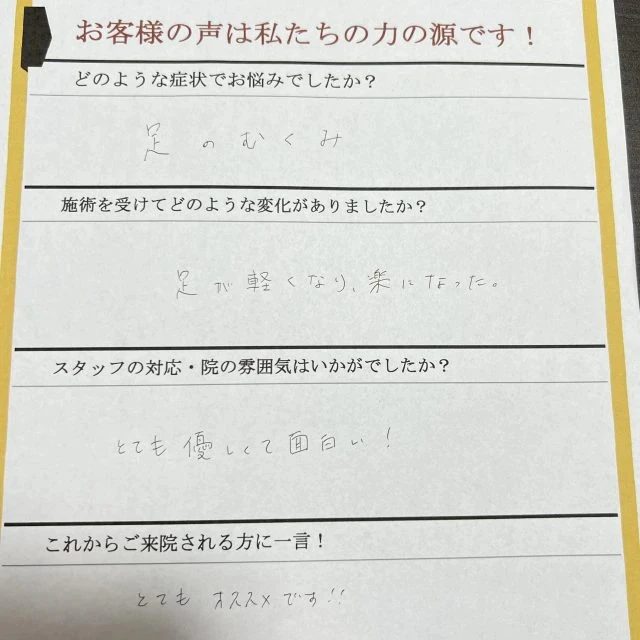 お客様の声は私たちの力の源です！
どのような症状でお悩みでしたか？
足のむくみ
施術を受けてどのような変化がありましたか？
足が軽くなり、楽になった。
スタッフの対応・院の雰囲気はいかがでしたか？
とても優しくて面白い！
これからご来院される方に一言！
とてもオススメです!!